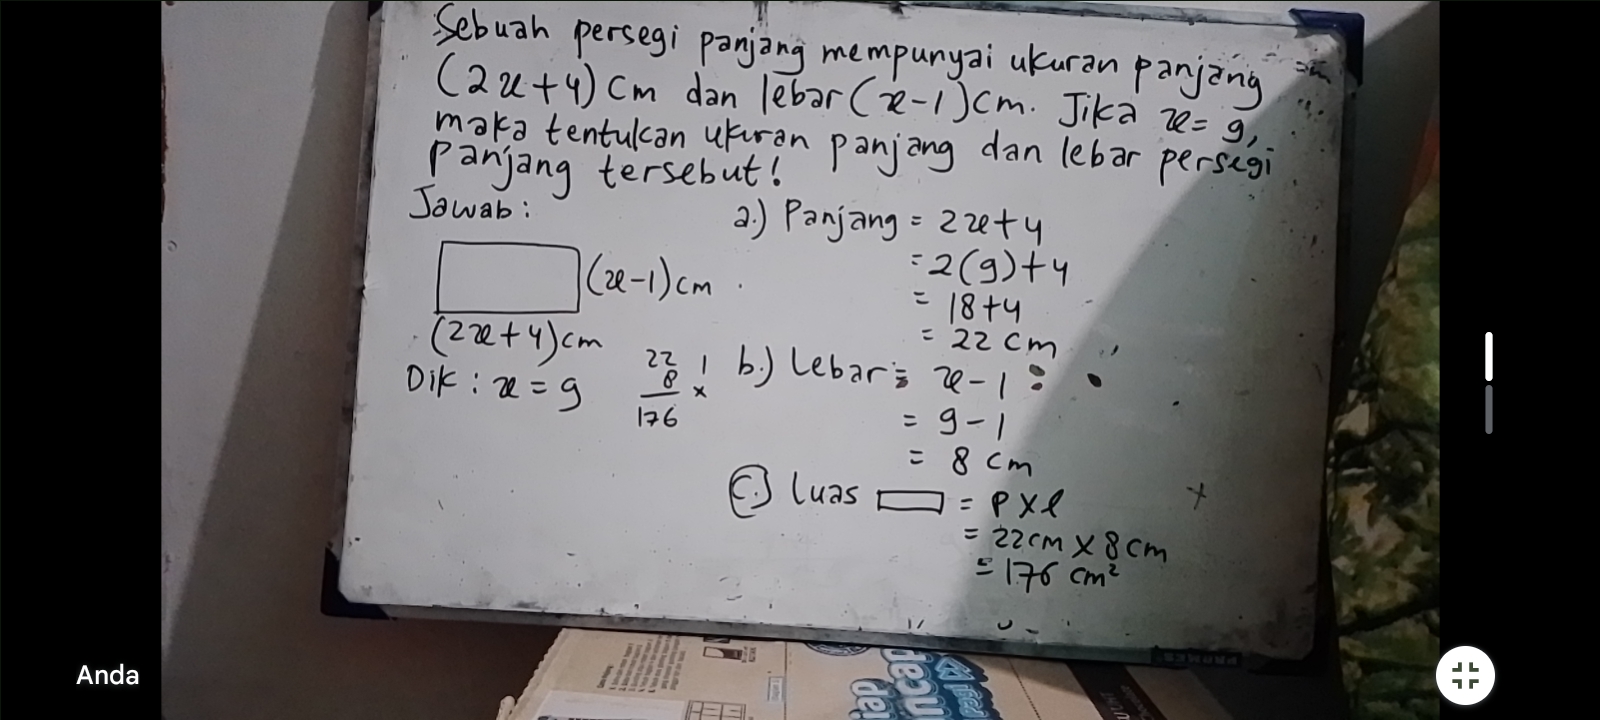 Sebuah persegi panjang mempunyai ukuran panjang
(2x+4) cm dan lebar (x-1) cm. Jika x= 9,
maka tentukan ukuran panjang dan lebar persegi
panjang tersebut!
Jawab:
(x-1) cm
(2x+4) cm
Dik : x = 9
22
8 x
176
a.) Panjang = 2x+4
= 2(9)+4
= 18+4
= 22 cm
b.) Lebar = x-1
= 9-1
= 8 cm
c.) Luas ▭ = P x l
= 22cm x 8cm
= 176 cm²
Anda